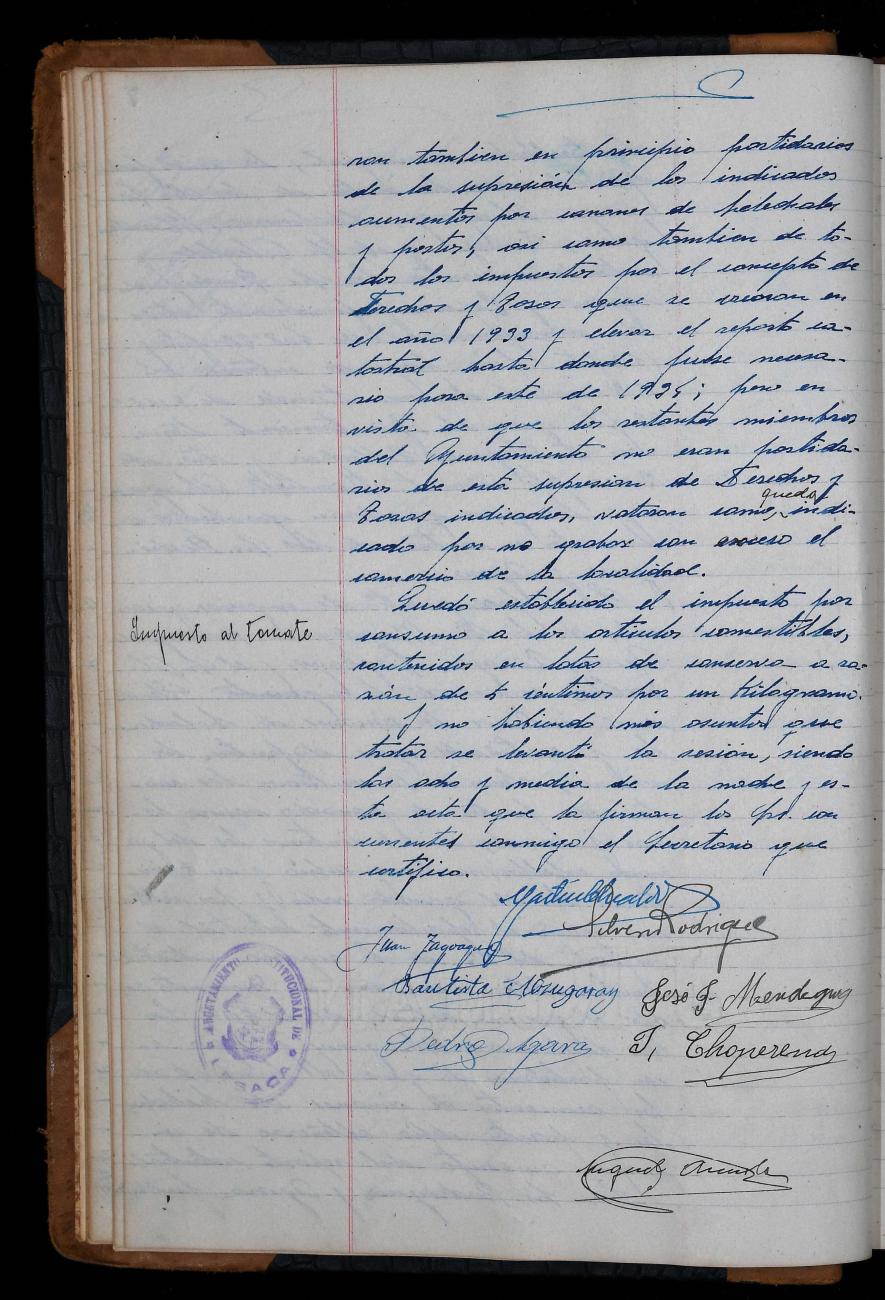 ron tambien en principio partidarios
de la supresión de los indicados
aumentos por canones de helechales
y pastos, asi como tambien de to-
dos los impuestos por el concepto de
Derechos y Tasas que se crearan en
el año 1933 y elevar el reparto ca-
tastral hasta donde fuese necesa-
rio para este de 1934; pero en
vista de que los restantes miembros
del Ayuntamiento no eran partida-
rios de esta supresion de Derechos y
Tasas indicados, votaron como, queda indi-
cado por no grabar con exceso el
comercio de la localidad.
Impuesto al tomate
Quedó establecido el impuesto por
consumo a los articulos comestibles,
contenidos en latas de conserva a ra-
zón de 5 céntimos por un Kilogramo.
Y no habiendo más asuntos que
tratar se levantó la sesión, siendo
las ocho y media de la noche y es-
ta acta que la firman los Sr. con
currentes conmigo el Secretario que
certifico.
Silverio Rodriguez
Juan
Bautista
José J. Mendeguia
Pedro
T, Choperena
Miguel
AYUNTAMIENTO CONSTITUCIONAL DE
LESACA